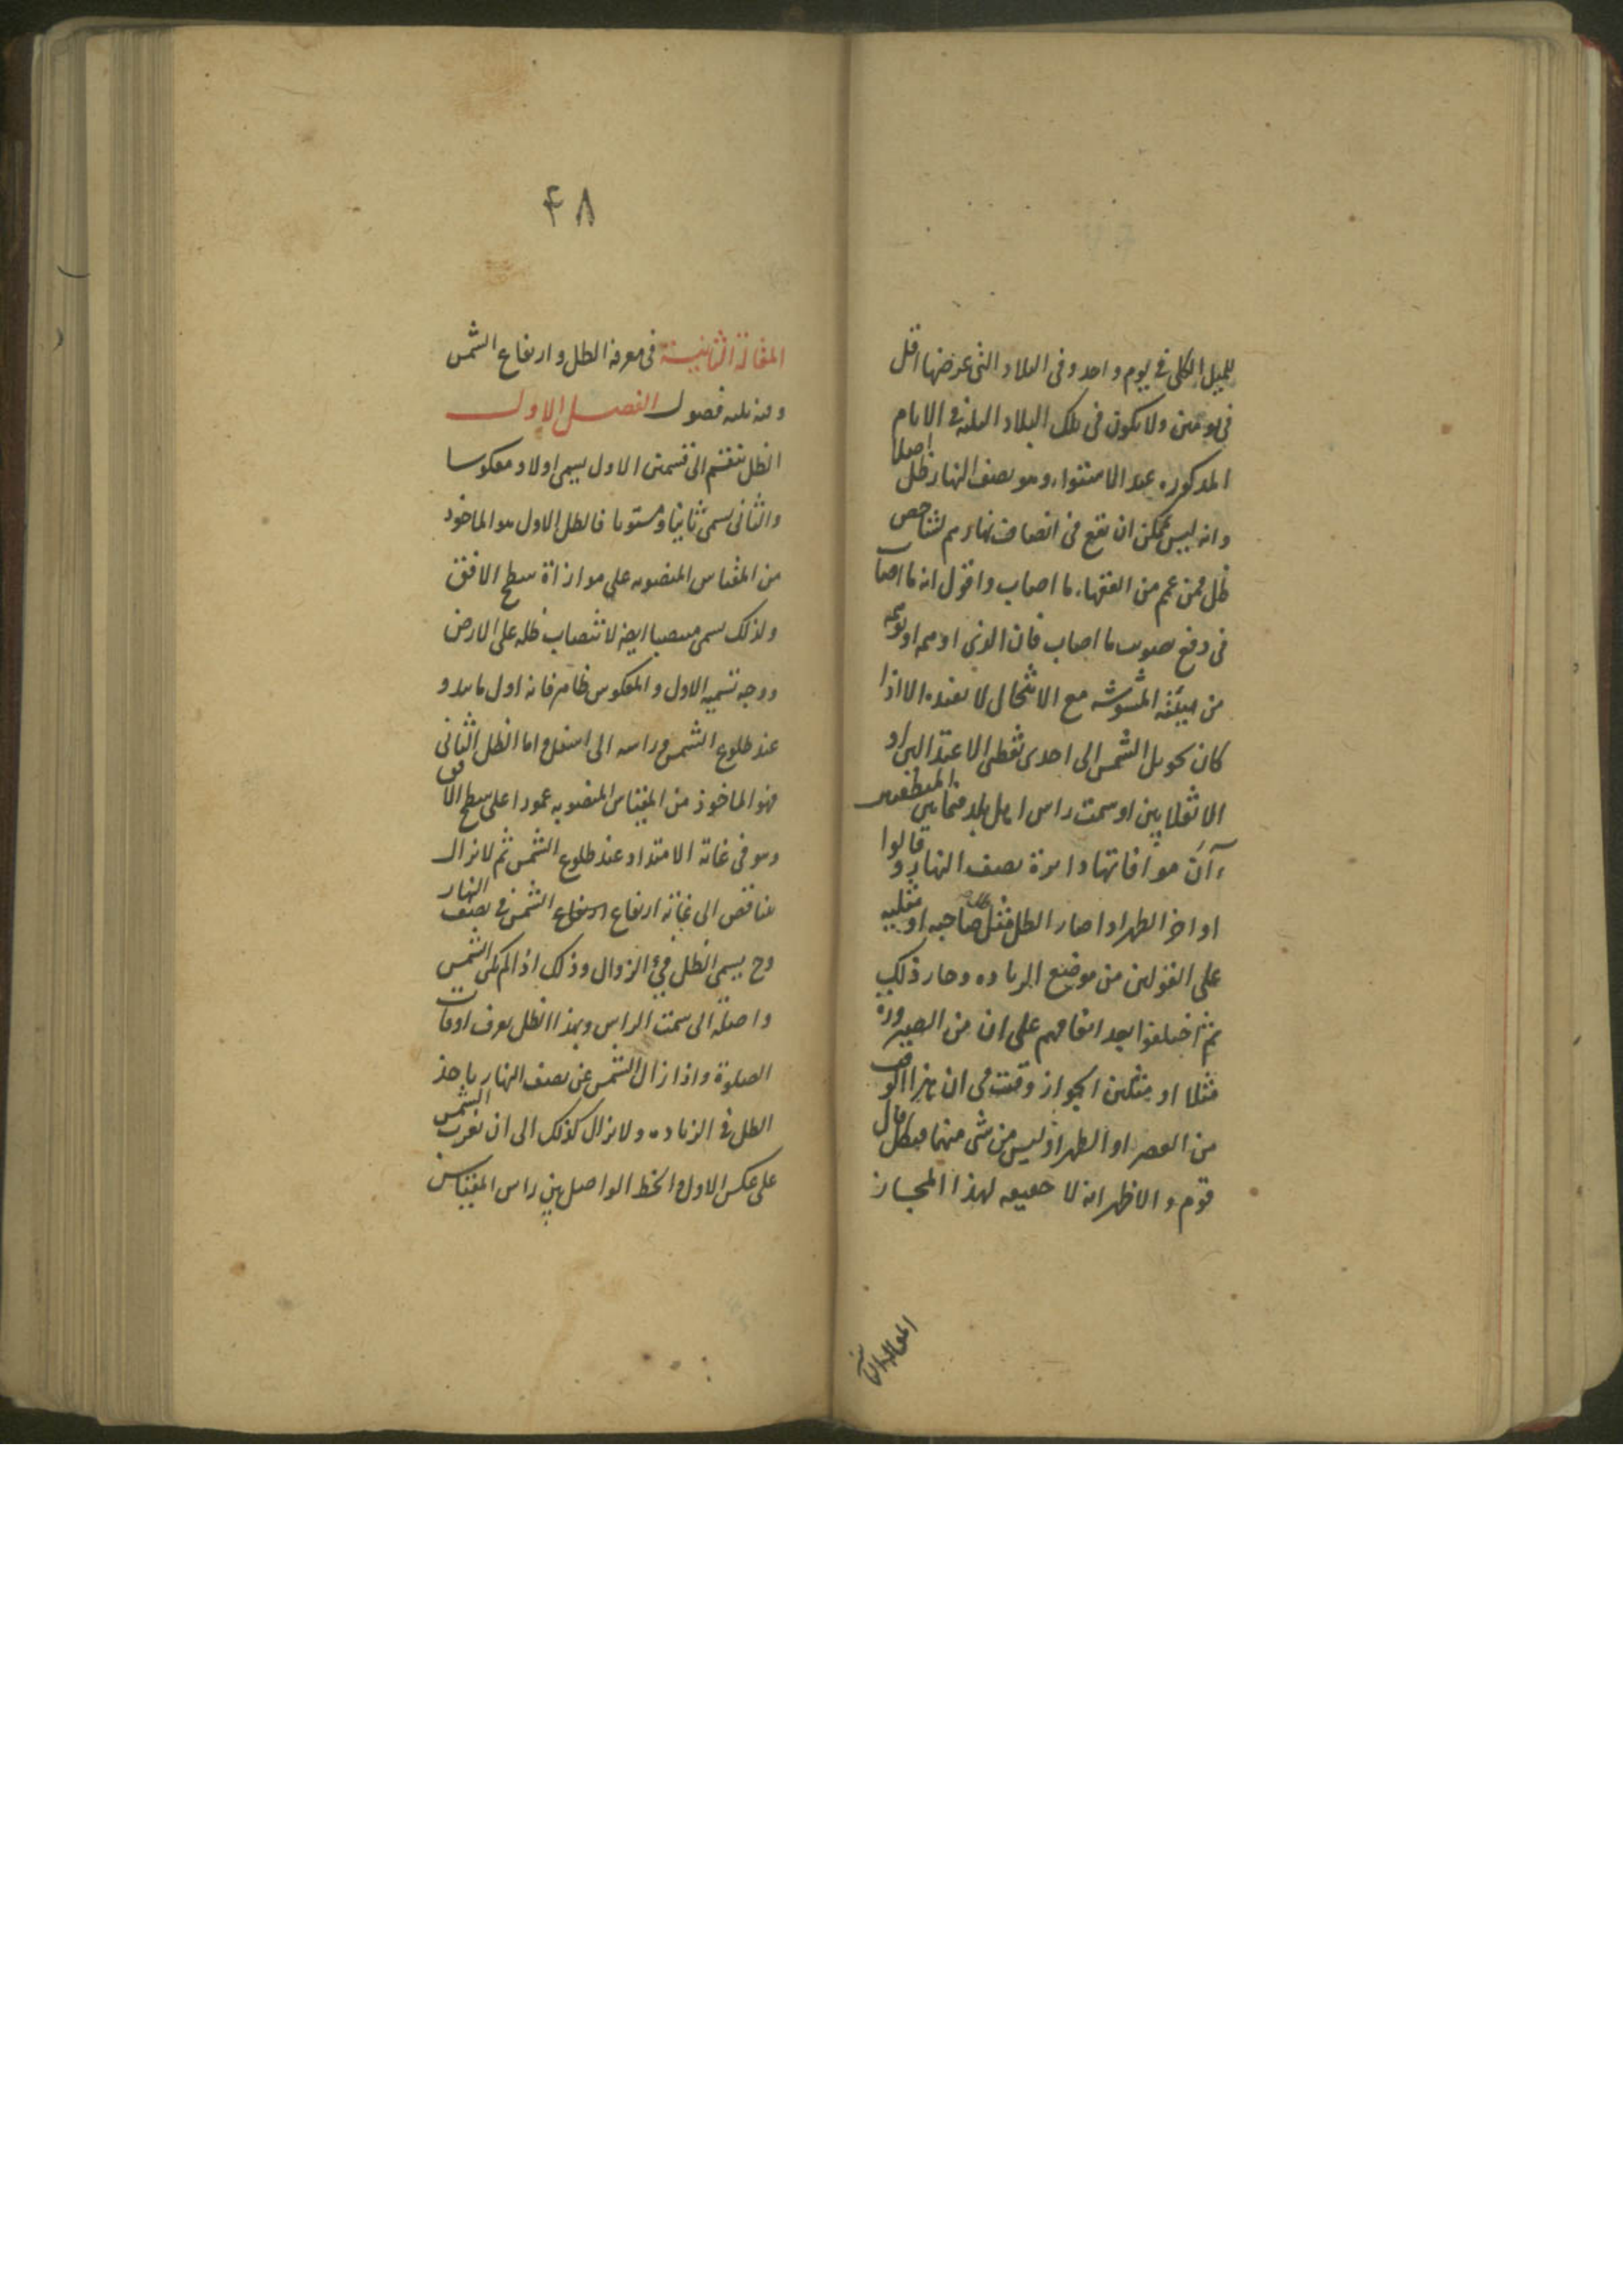 للميل الكلى فى يوم واحد وفى البلاد التى عرضها اقل
فى يومين ولا يكون فى تلك البلاد الثلثة فى الايام
المذكورة عند الاستواء وهو نصف النهار ظل اصلا
وانه ليس يمكن ان تقع فى انصاف نهارهم لشاخص
ظل فمن عمم من الفقهاء ما اصاب واقول انه ما اصاب
فى دفع ما اصاب فان الذى
من المشوشة مع الا اذا
كان تحويل الشمس الى احدى نقطتى الاعتدالين او
الانقلابين او سمت راس اهل بلد
آن موافاتها دايرة نصف النهار وقالوا
اواخر الظهر اذا صار الظل مثل صاحبه او مثليه
على القولين من موضع الزيادة وصار ذلك
ثم اختلفوا بعد اتفاقهم على ان من الصيرورة
مثلا او مثلين الجواز وقت فى ان هذا الوقت
من العصر او الظهر اذ ليس من شى منهما فبكل قال
قوم والاظهر انه لا حقيقه لهذا المجاز
المقالة الثانية
۴۸
المقالة الثانية فى معرفة الظل وارتفاع الشمس
وفيه ثلثه فصول الفصل الاول
الظل ينقسم الى قسمين الاول يسمى اولا ومعكوسا
والثانى يسمى ثانيا ومستويا فالظل الاول هو الماخوذ
من المقياس المنصوبه على موازاة سطح الافق
ولذلك يسمى منتصبا ايضا لانتصاب ظله على الارض
ووجه تسميه الاول والمعكوس ظاهر فانه اول ما يبدو
عند طلوع الشمس وراسه الى اسفل واما الظل الثانى
فهو الماخوذ من المقياس المنصوبه عمودا على سطح الافق
وهو فى غاية الامتداد عند طلوع الشمس ثم لايزال
يتناقص الى غاية ارتفاع ارتفاع الشمس فى نصف النهار
وح يسمى الظل فئ الزوال وذلك اذا لم تكن الشمس
واصلة الى سمت الراس وبهذا الظل يعرف اوقات
الصلوة واذا زال الشمس عن نصف النهار ياخذ
الظل فى الزياده ولايزال كذلك الى ان تغرب الشمس
على عكس الاول والخط الواصل بين راس المقياس